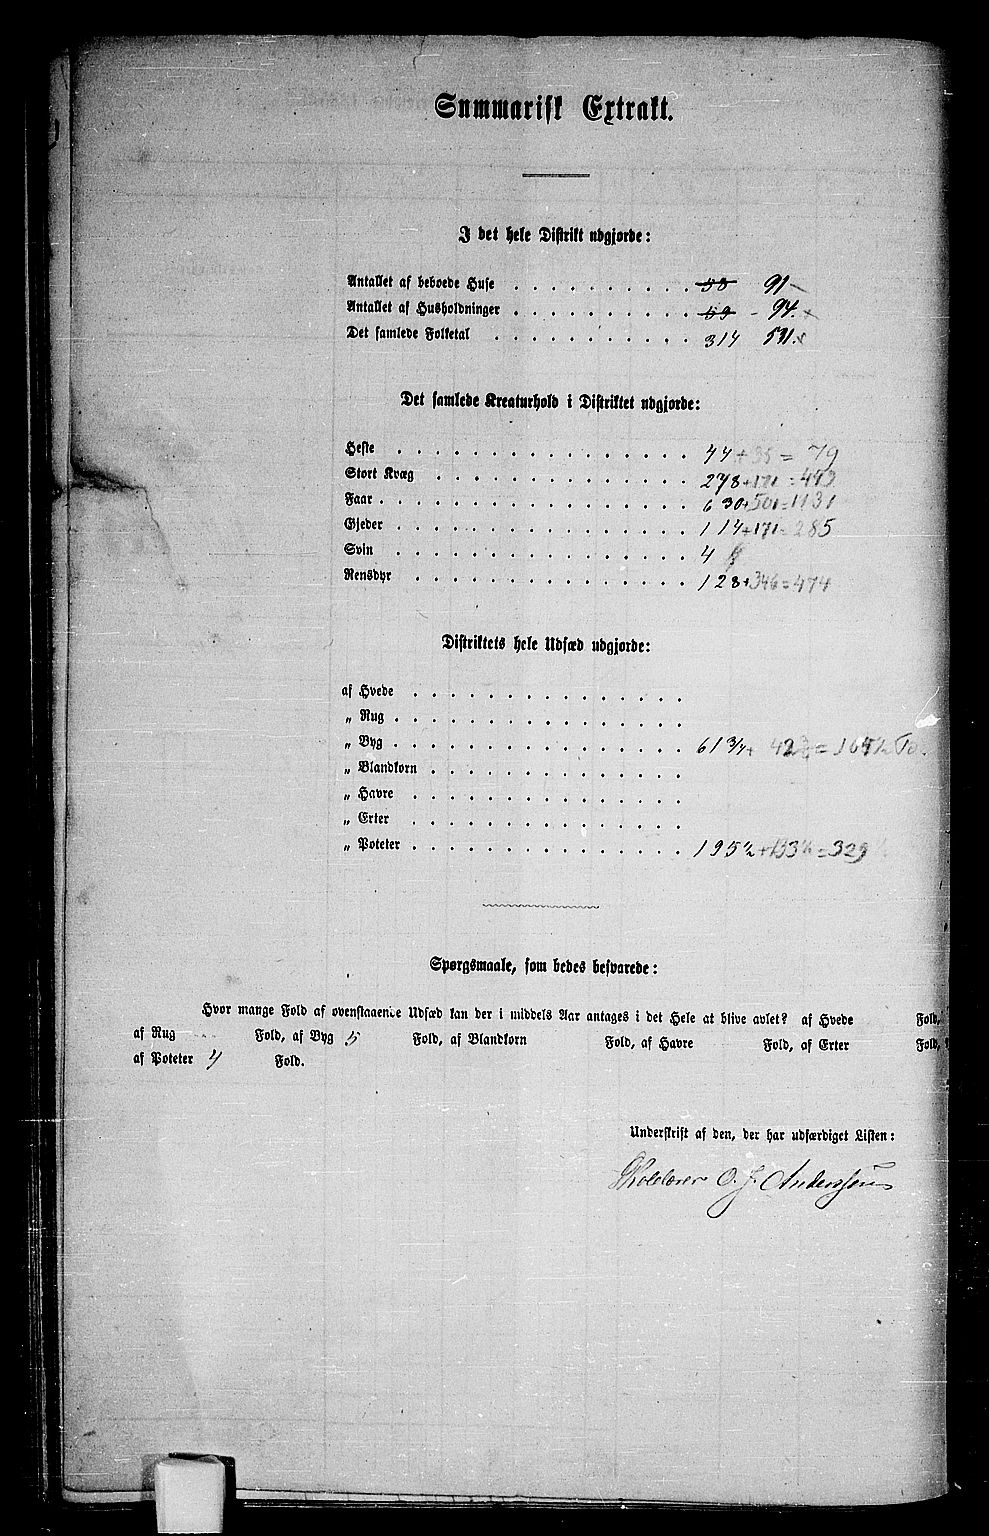 Summarisk Extrakt.
I det hele Distrikt udgjorde:
Antallet af beboede Huse . . . . . . . . . . 58 91
Antallet af Husholdninger . . . . . . . . . . 59 - 94.
Det samlede Folketal . . . . . . . . . . . 314 531.
Det samlede Kreaturhold i Distriktet udgjorde:
Heste . . . . . . . . . . . . . . . . 44 + 35 = 79
Stort Kvæg . . . . . . . . . . . . . . 278 + 171 = 449
Faar . . . . . . . . . . . . . . . . . 630 + 501 = 1131
Gjeder . . . . . . . . . . . . . . . . 114 + 171 = 285
Svin . . . . . . . . . . . . . . . . 4
Rensdyr . . . . . . . . . . . . . . . 128 + 346 = 474
Distriktets hele Udsæd udgjorde:
af Hvede . . . . . . . . . . . . . . .
„ Rug . . . . . . . . . . . . . . . .
„ Byg . . . . . . . . . . . . . . . . 61 3/4 +
„ Blandkorn . . . . . . . . . . . . . .
„ Havre . . . . . . . . . . . . . . .
„ Erter . . . . . . . . . . . . . . .
„ Poteter . . . . . . . . . . . . . . . 195½ + 133½ = 329
Spørgsmaale, som bedes besvarede:
Hvor mange Fold af ovenstaaende Udsæd kan der i middels Aar antages i det Hele at blive avlet? af Hvede Fold,
af Rug Fold, af Byg 5 Fold, af Blandkorn Fold, af Havre Fold, af Erter Fold,
af Poteter 4 Fold.
Underskrift af den, der har udfærdiget Listen:
Skolelærer O. J. Anderssen